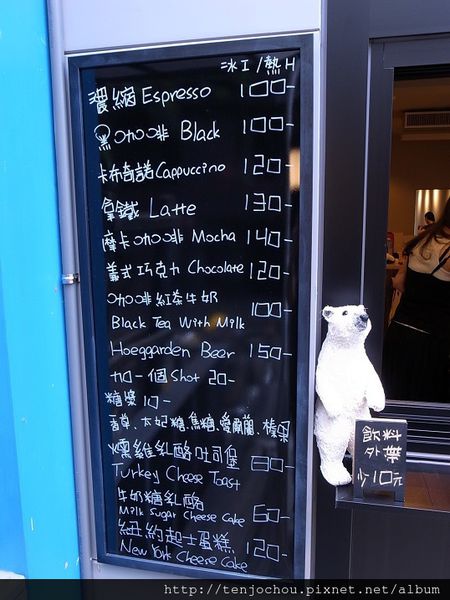 冰I/熱H
濃縮Espresso 100-
黑咖啡 Black 100-
卡布奇諾Cappuccino 120-
拿鐵 Latte 130-
摩卡咖啡 Mocha 140-
義式巧克力 Chocolate 120-
咖啡紅茶牛奶 100-
Black Tea With Milk
Hoeggarden Beer 150-
加一個shot 20-
糖漿 10-
香草、太妃糖、焦糖、愛爾蘭、榛果
燻雞乳酪吐司堡 80-
Turkey Cheese Toast
牛奶糖乳酪
Milk Sugar Cheese Cake 60-
紐約起士蛋糕 120-
New York Cheese Cake
飲料
外帶
少10元
http://tenjochou.pixnet.net/album